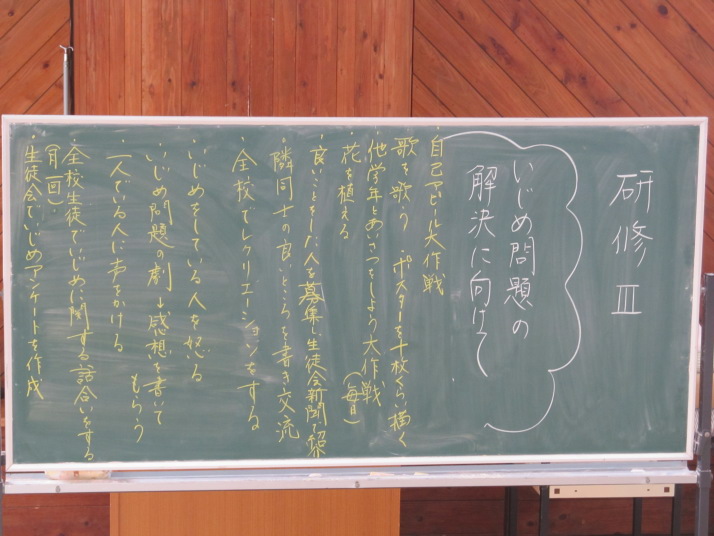 研修Ⅲ
いじめ問題の
解決に向けて
・自己アピール大作戦
歌を歌う ポスターを十枚くらい描く
・他学年とあいさつをしよう大作戦
(毎日)
・花を植える
・良いことをした人を募集し生徒会新聞で紹介
・隣同士の良いところを書き交流
・全校でレクリエーションをする
・いじめをしている人を怒る
・いじめ問題の劇→感想を書いて
もらう
・一人でいる人に声をかける
・全校生徒でいじめに関する話合いをする
(月一回)
・生徒会でいじめアンケートを作成